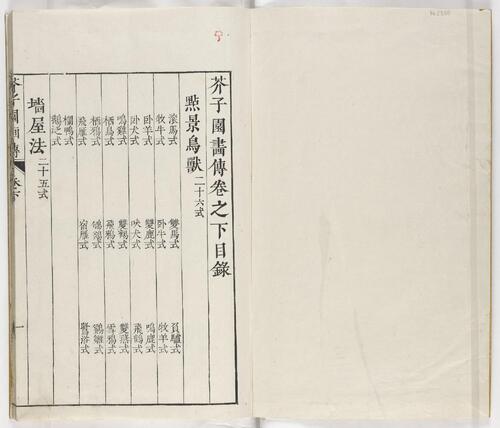 芥子園畵傳卷之下目錄
點景鳥獸二十六式
滚馬式 雙馬式 負驢式
牧牛式 卧牛式 牧羊式
卧羊式 雙鹿式 鳴鹿式
卧犬式 吠犬式 飛鶴式
鳴雞式 雙鵝式 雙燕式
栖鳥式 飛鴉式 雪鴉式
栖鴉式
飛雁式 宿雁式
欄鴨式
鵝泛式
墻屋法二十五式
芥子園畵傳
一